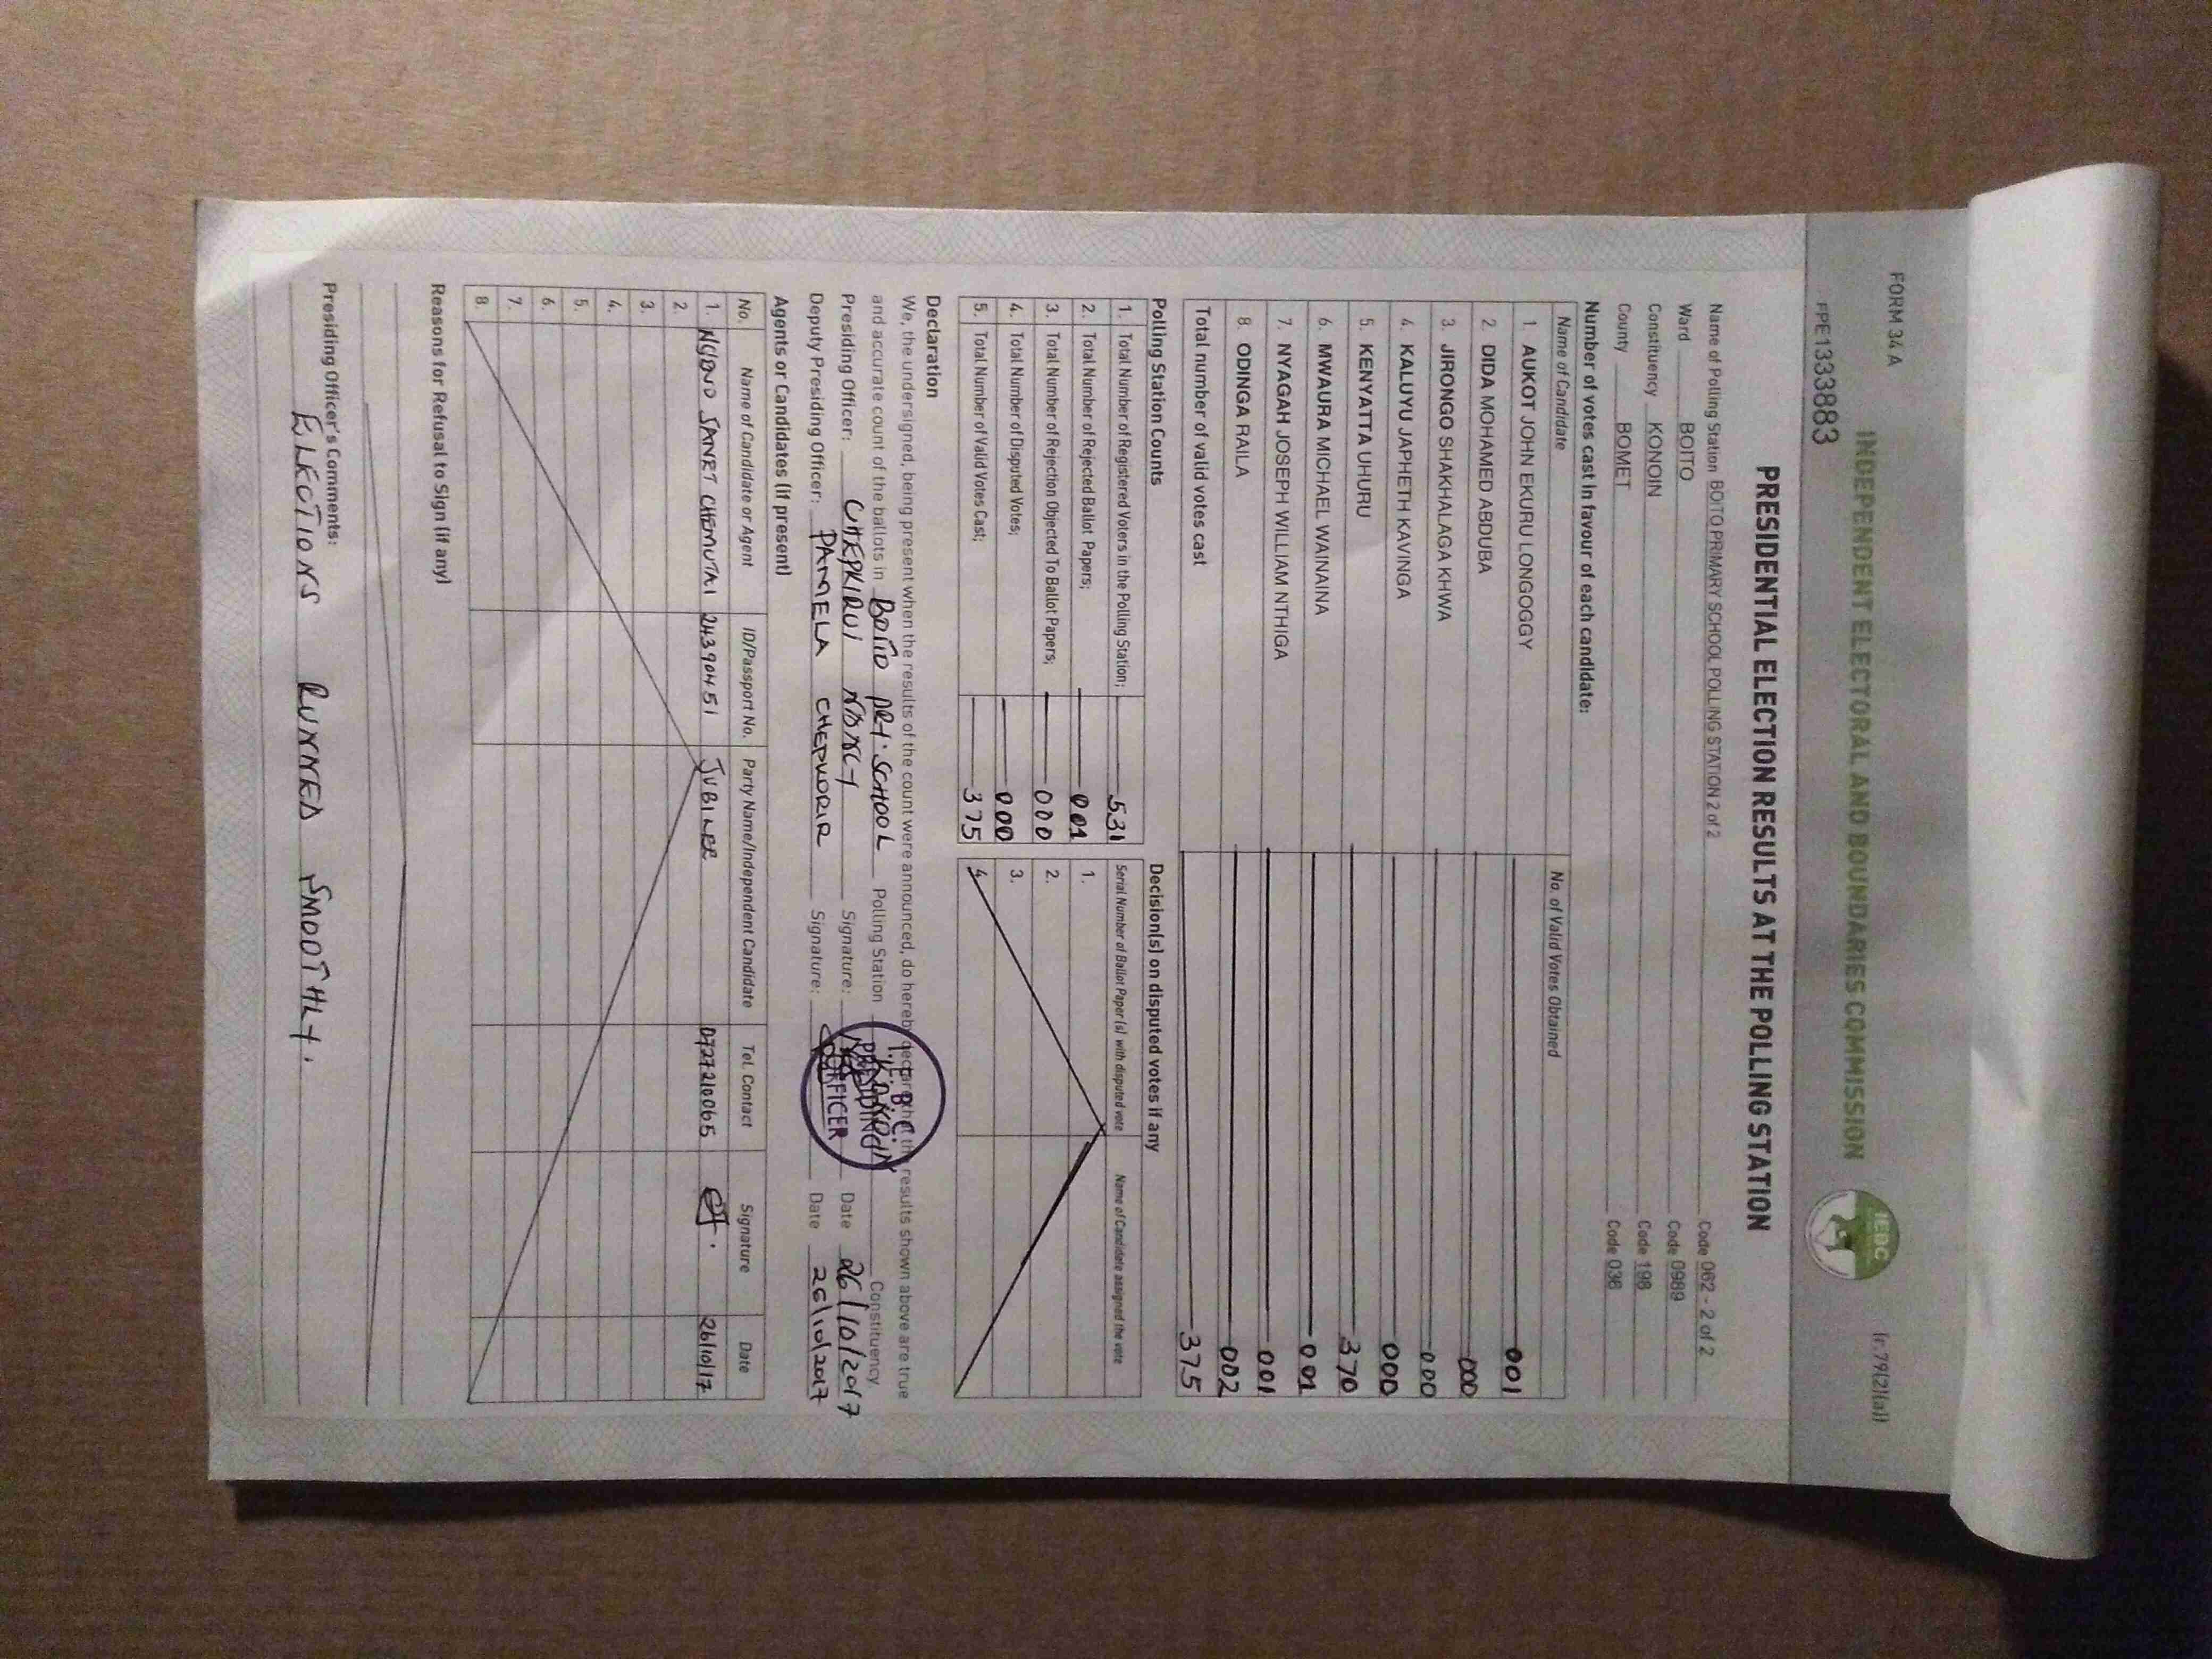 FORM 34 A
(r.79(2)(a))
INDEPENDENT ELECTORAL AND BOUNDARIES COMMISSION
IEBC
FPE1333883
PRESIDENTIAL ELECTION RESULTS AT THE POLLING STATION
Name of Polling Station BOITO PRIMARY SCHOOL POLLING STATION 2 of 2 Code 062 - 2 of 2
Ward BOITO Code 0989
Constituency KONOIN Code 198
County BOMET Code 036
Number of votes cast in favour of each candidate:
Name of Candidate No. of Valid Votes Obtained
1. AUKOT JOHN EKURU LONGOGGY 001
2. DIDA MOHAMED ABDUBA 000
3. JIRONGO SHAKHALAGA KHWA 000
4. KALUYU JAPHETH KAVINGA 000
5. KENYATTA UHURU 370
6. MWAURA MICHAEL WAINAINA 001
7. NYAGAH JOSEPH WILLIAM NTHIGA 001
8. ODINGA RAILA 002
Total number of valid votes cast 375
Polling Station Counts Decision(s) on disputed votes if any
1. Total Number of Registered Voters in the Polling Station; 531 Serial Number of Ballot Paper (s) with disputed vote Name of Candidate assigned the vote
2. Total Number of Rejected Ballot Papers; 001 1.
3. Total Number of Rejection Objected To Ballot Papers; 000 2.
4. Total Number of Disputed Votes; 000 3.
5. Total Number of Valid Votes Cast; 375 4.
Declaration
We, the undersigned, being present when the results of the count were announced, do hereby declare that the results shown above are true
and accurate count of the ballots in BOITO PRI. SCHOOL Polling Station KONOIN Constituency.
Presiding Officer: CHEPKIRUI NANCY Signature: Date 26/10/2017
Deputy Presiding Officer: PAMELA CHEPKORIR Signature: Date 26/10/2017
I.E.B.C.
PRESIDING
OFFICER
Agents or Candidates (if present)
No. Name of Candidate or Agent ID/Passport No. Party Name/Independent Candidate Tel. Contact Signature Date
1. JANET CHEMUTAI 24390451 JUBILEE 0727210065 26/10/17
2.
3.
4.
5.
6.
7.
8.
Reasons for Refusal to Sign (if any)
Presiding Officer's Comments:
ELECTIONS RUNNED SMOOTHLY.